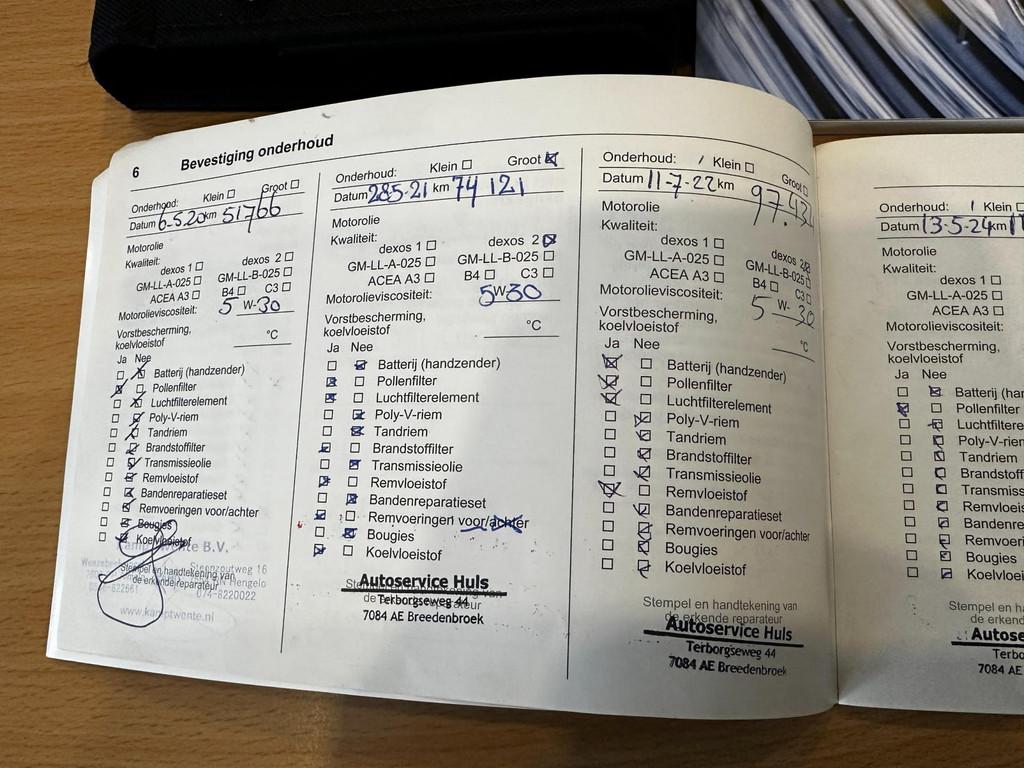 6 Bevestiging onderhoud
Onderhoud: Klein Groot
Datum 6-5.20 km 51766
Motorolie
Kwaliteit:
dexos 1 dexos 2
GM-LL-A-025 GM-LL-B-025
ACEA A3 B4 C3
Motorolieviscositeit: 5 W-30
Vorstbescherming,
koelvloeistof °C
Ja Nee
Batterij (handzender)
Pollenfilter
Luchtfilterelement
Poly-V-riem
Tandriem
Brandstoffilter
Transmissieolie
Remvloeistof
Bandenreparatieset
Remvoeringen voor/achter
Bougies
Koelvloeistof
Stempel en handtekening van
de erkende reparateur
Hengelo
074-8220022
www.kamptwente.nl
Onderhoud: Klein Groot
Datum 285-21 km 74 121
Motorolie
Kwaliteit:
dexos 1 dexos 2
GM-LL-A-025 GM-LL-B-025
ACEA A3 B4 C3
Motorolieviscositeit: 5W-30
Vorstbescherming,
koelvloeistof °C
Ja Nee
Batterij (handzender)
Pollenfilter
Luchtfilterelement
Poly-V-riem
Tandriem
Brandstoffilter
Transmissieolie
Remvloeistof
Bandenreparatieset
Remvoeringen voor/achter
Bougies
Koelvloeistof
Autoservice Huls
Terborgseweg 44
7084 AE Breedenbroek
Onderhoud: Klein Groot
Datum 11-7-22 km
Motorolie
Kwaliteit:
dexos 1 dexos 2
GM-LL-A-025 GM-LL-B-025
ACEA A3 B4 C3
Motorolieviscositeit: 5 W-30
Vorstbescherming,
koelvloeistof °C
Ja Nee
Batterij (handzender)
Pollenfilter
Luchtfilterelement
Poly-V-riem
Tandriem
Brandstoffilter
Transmissieolie
Remvloeistof
Bandenreparatieset
Remvoeringen voor/achter
Bougies
Koelvloeistof
Stempel en handtekening van
de erkende reparateur
Autoservice Huls
Terborgseweg 44
7084 AE Breedenbroek
Onderhoud: Klein
Datum 13-5-24 km
Motorolie
Kwaliteit:
dexos 1
GM-LL-A-025
ACEA A3
Motorolieviscositeit:
Vorstbescherming,
koelvloeistof
Ja Nee
Batterij (har
Pollenfilter
Luchtfiltere
Poly-V-rie
Tandriem
Brandstoff
Transmiss
Remvloeis
Bandenre
Remvoeri
Bougies
Koelvloei
Stempel en hand
de erkend
Autose
Terbo
7084 AE